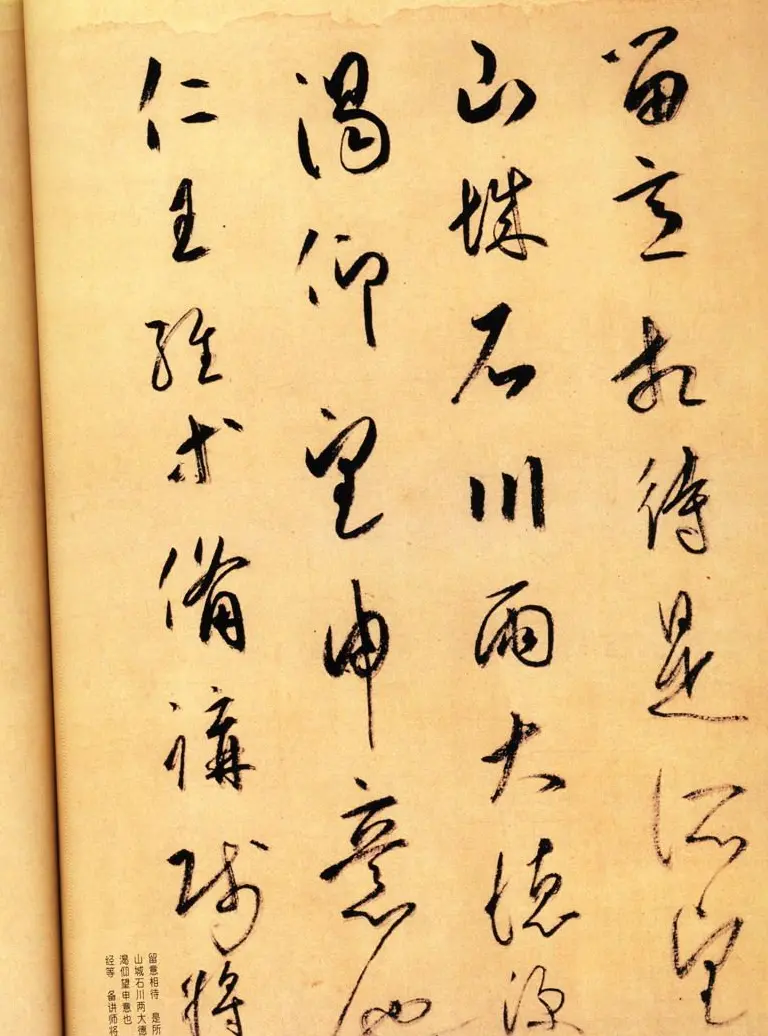 留意相待是所望
山城石川兩大德深
渴仰望申意也
仁王經等備講師将
留意相待 是所
山城石川两大德
渴仰望申意也
经等 备讲师将